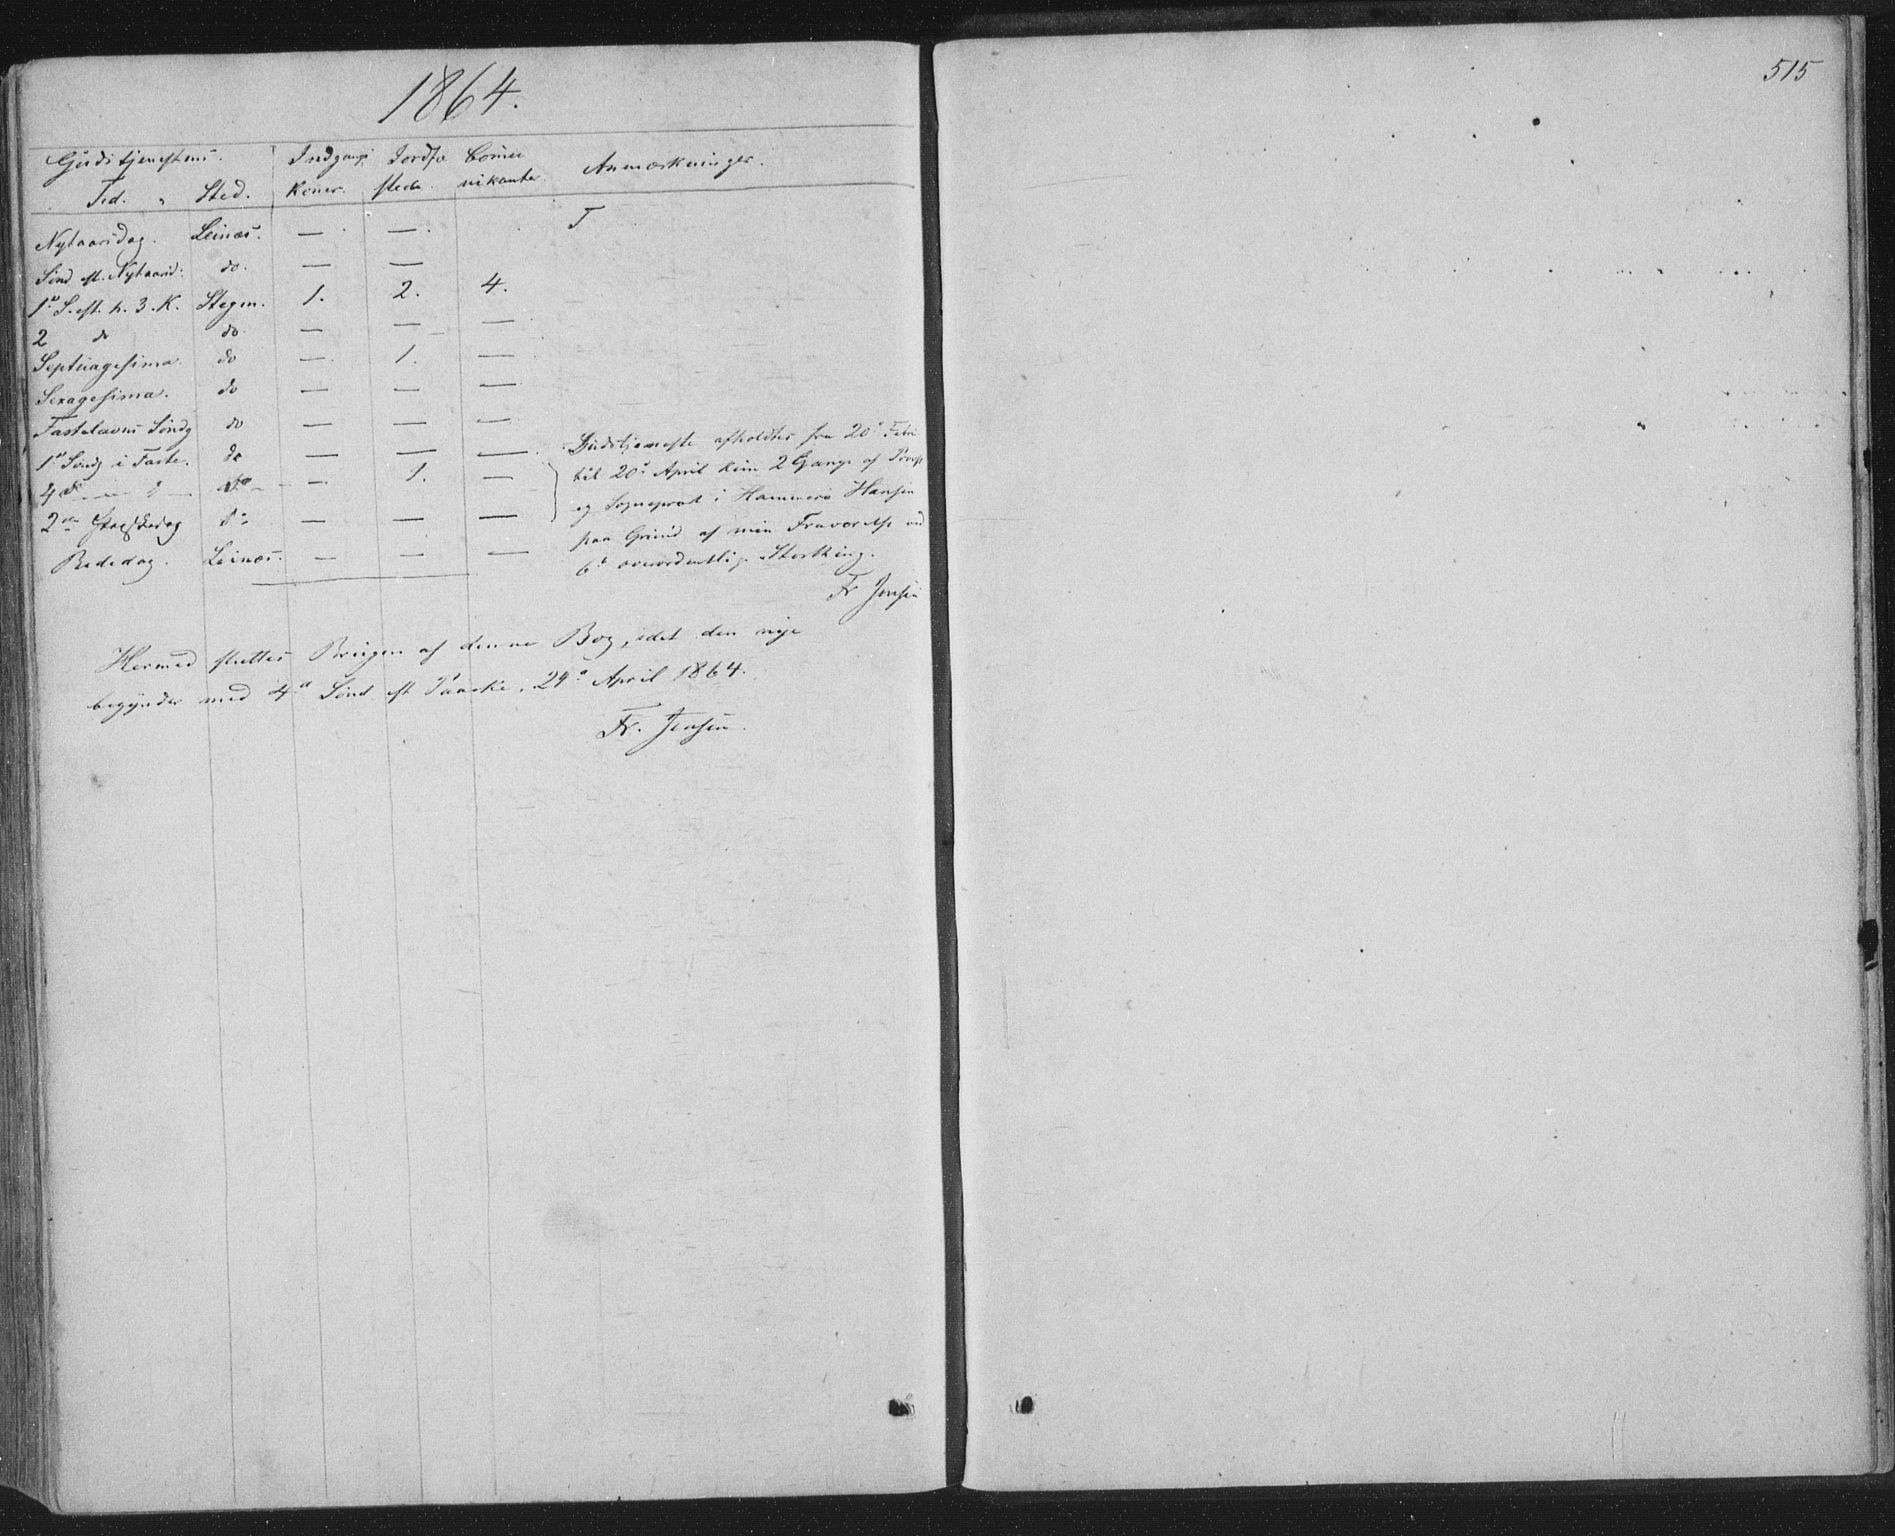 515
1864.
Gudstjenestens. Indgangs Jordfæ Commu Anmærkninger.
Tid. Sted. Koner. stede. nikanter.
Nytaarsdag. Leinæs. — —
Sønd eft. Nytaard: do. — —
1ste S. eft. h. 3. K. Stegen. 1. 2. 4.
2 do do — — —
Septuagesima. do — 1. —
Sexagesima. do — — —
Fastelavns Søndg do — — —
1ste Søndg i Faste. do — — — Gudstjeneste afholdtes fra 20de Febr
4de do — 1. — til 20de April kun 2 Gange af Provst
2den Paaskedag do — — — og Sogneprest i Hammerø Hansen
paa Grund af min Fraværelse ved
Bededag. Leinæs. — — — 6te overordentlige Storthing.
Fr Jensen
Hermed sluttes Brugen af denne Bog, idet den nye
begynder med 4de Sønd eft Paaske, 24de April 1864.
Fr. Jensen.